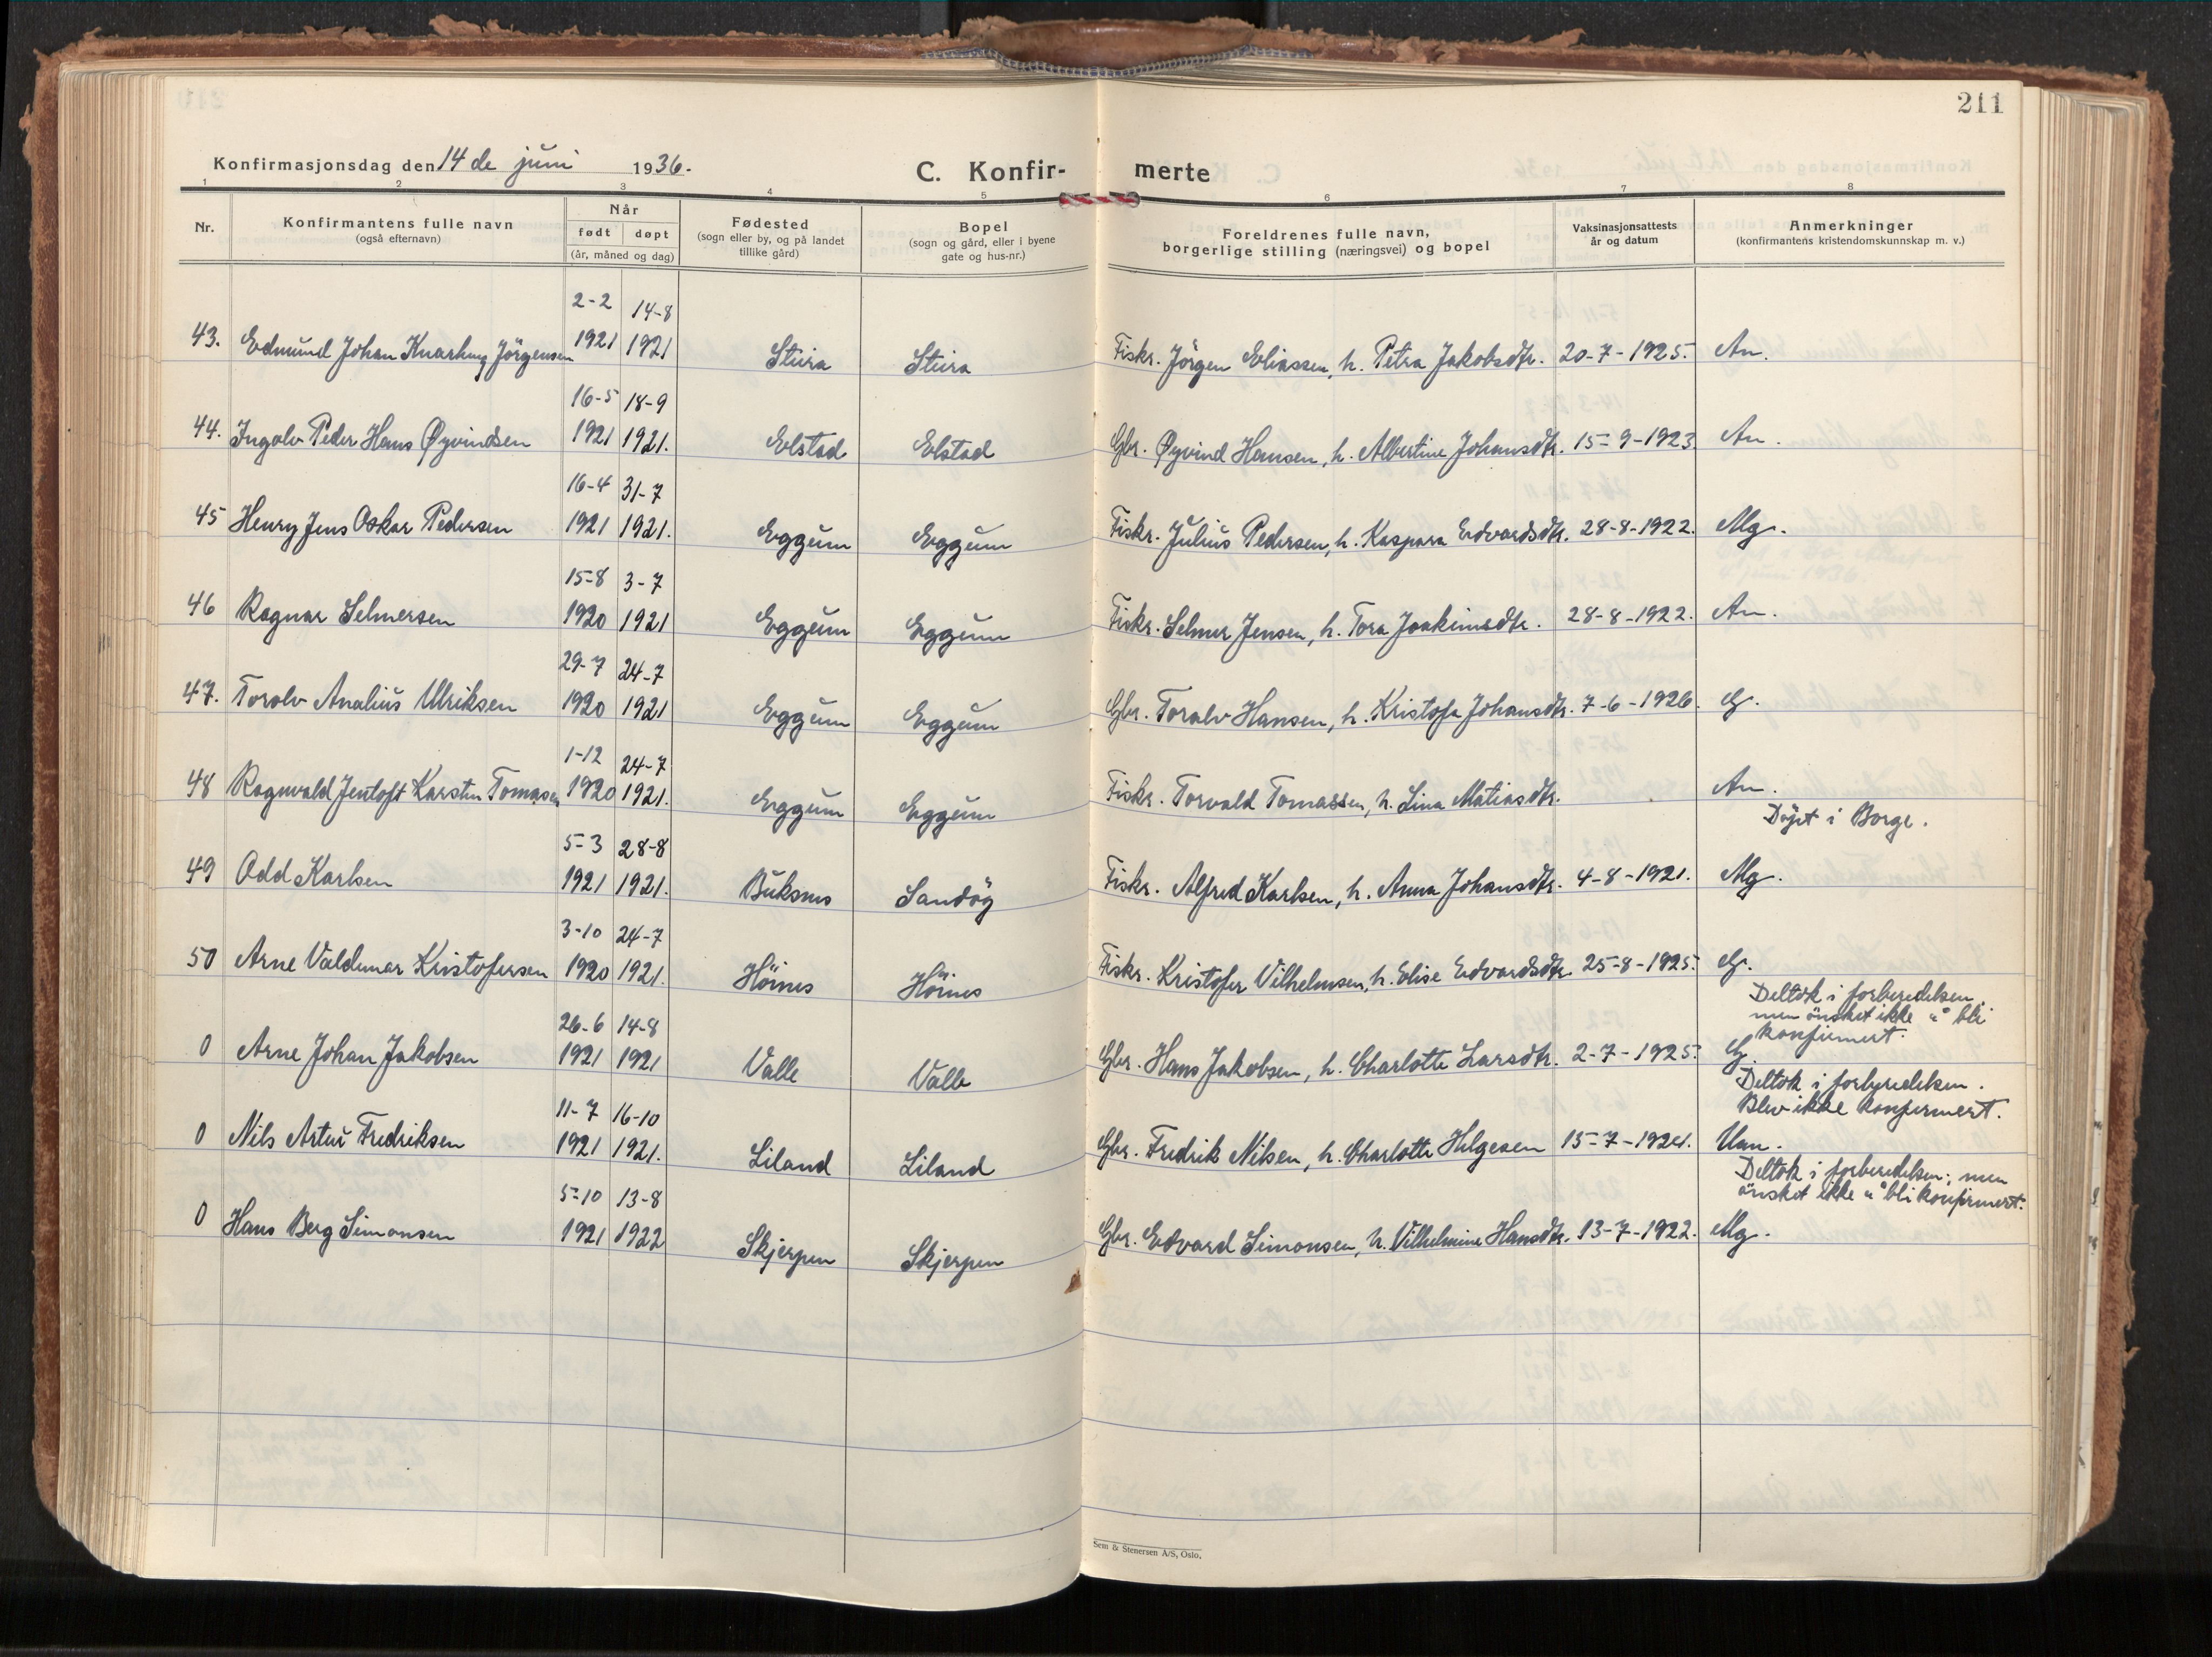 211
Konfirmasjonsdag den 14 de juni 1936.
C. Konfir- merte
1 2 3 4 5 6 7 8
Nr. Konfirmantens fulle navn (også efternavn) Når født døpt (år, måned og dag) Fødested (sogn eller by, og på landet tillike gård) Bopel (sogn og gård, eller i byene gate og hus-nr.) Foreldrenes fulle navn, borgerlige stilling (næringsvei) og bopel Vaksinasjonsattests år og datum Anmerkninger (konfirmantens kristendomskunnskap m. v.)
2-2 14-8
43. Edmund Johan Knarhug Jörgensen 1921 1921 Stura Stura Fiskr. Jörgen Eliassen, h. Petra Jakobsdtr. 20-7-1925. An.
16-5 18-9
44. Ingolv Peder Hans Øyvindsen 1921 1921. Elstad Elstad Gbr. Øyvind Hansen, h. Albertine Johansdtr. 15-9-1923. An.
16-4 31-7
45 Henry Jens Oskar Pedersen 1921 1921. Eggum Eggum Fiskr. Julius Pedersen, h. Kaspara Edvardsdtr. 28-8-1922. Mg.
15-8 3-7
46 Ragnar Selmersen 1920 1921 Eggum Eggum Fiskr. Selmer Jensen, h. Tora Joakimsdtr. 28-8-1922. An.
29-7 24-7
47. Torolv Analius Ulriksen 1920 1921 Eggum Eggum Gbr. Toralv Hansen, h. Kristofa Johansdtr. 7-6-1926. G.
1-12 24-7
48 Ragnvald Jentoft Karsten Tomasen 1920 1921. Eggum Eggum Fiskr. Torvald Tomassen, h. Lina Matiasdtr. An.
Døpt i Borge.
5-3 28-8
49 Odd Karlsen 1921 1921. Buksnes Sandöy Fiskr. Alfred Karlsen, h. Anna Johansdtr. 4-8-1921. Mg.
3-10 24-7
50 Arne Valdemar Kristofersen 1920 1921. Hörnes Hörnes Fiskr. Kristofer Vilhelmsen, h. Elise Edvardsdtr. 25-8-1925. G.
Deltok i forberedelsen,
men önsket ikke å bli
konfirmert.
26-6 14-8
0 Arne Johan Jakobsen 1921 1921 Valle Valle Gbr. Hans Jakobsen, h. Charlotte Larsdtr. 2-7-1925. G.
Deltok i forberedelsen.
Blev ikke konfirmert.
11-7 16-10
0 Nils Artur Fredriksen 1921 1921. Liland Liland Gbr. Fredrik Nilsen, h. Charlotte Helgesen 15-7-1924. Uan.
Deltok i forberedelsen; men
önsket ikke å bli konfirmert.
5-10 13-8
0 Hans Berg Simonsen 1921 1922 Skjerpen Skjerpen Gbr. Edvard Simonsen, h. Vilhelmine Hansdtr. 13-7-1922. Mg.
Sem & Stenersen A/S, Oslo.